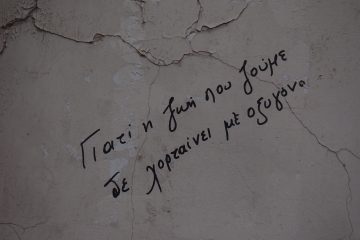 Γιατί η ζωή που ζούμε
δε χορταίνει με οξυγόνο